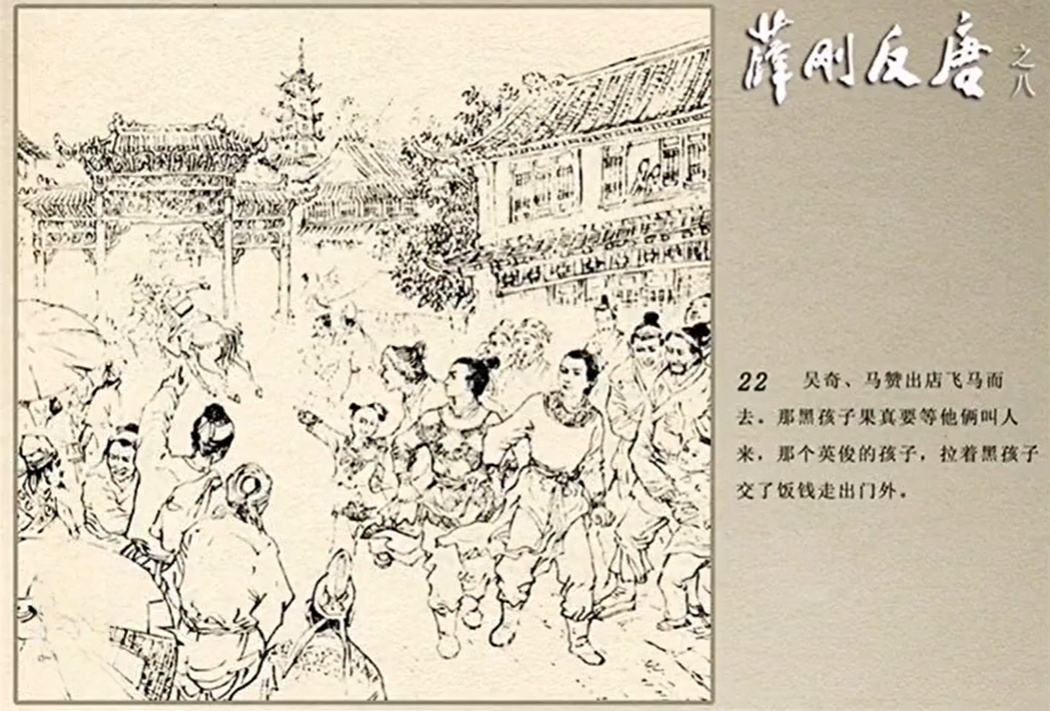 薛刚反唐
之八
22 吴奇、马赞出店飞马而
去。那黑孩子果真要等他俩叫人
来，那个英俊的孩子，拉着黑孩子
交了饭钱走出门外。